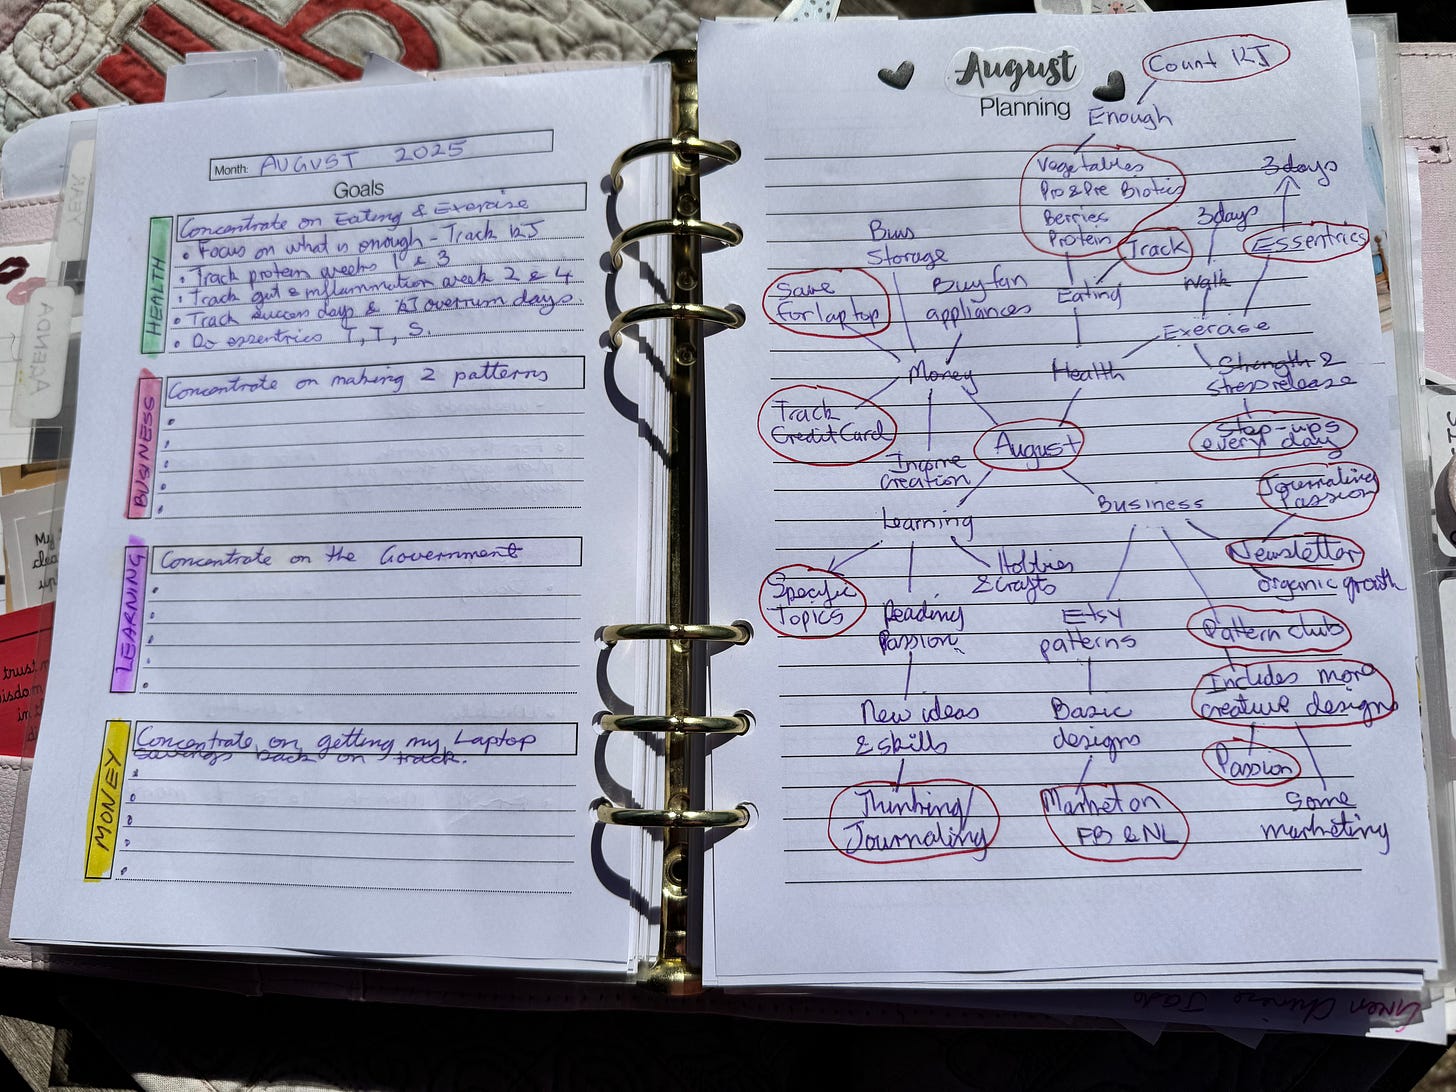 Month: AUGUST 2025
Goals
HEALTH
Concentrate on Eating & Exercise
• Focus on what is enough - Track KJ
• Track protein weeks 1 & 3
• Track gut & inflammation week 2 & 4
• Track success days & KJ overrun days.
• Do essentrics T, T, S.
BUSINESS
Concentrate on making 2 patterns
LEARNING
Concentrate on the Government
MONEY
Concentrate on getting my Laptop
savings back on track.
August
Planning
Count KJ
Enough
Vegetables
Pro & Pre Biotics
Berries
Protein
Track
Eating
3 days
3 days
Essentrics
Walk
Exercise
Strength &
stress release
Step-ups
every day
Health
Bills
Storage
Save
for laptop
Buy fan
appliances
Money
Track
Credit Card
Income
Creation
August
Learning
Specific
Topics
Reading
Passion
Hobbies
& Crafts
New ideas
& skills
Thinking/
Journaling
Business
Etsy
patterns
Basic
designs
Market on
FB & NL
Journaling
Passion
Newsletter
organic growth
Pattern club
Includes more
creative designs
Passion
Some
marketing
AGENDA